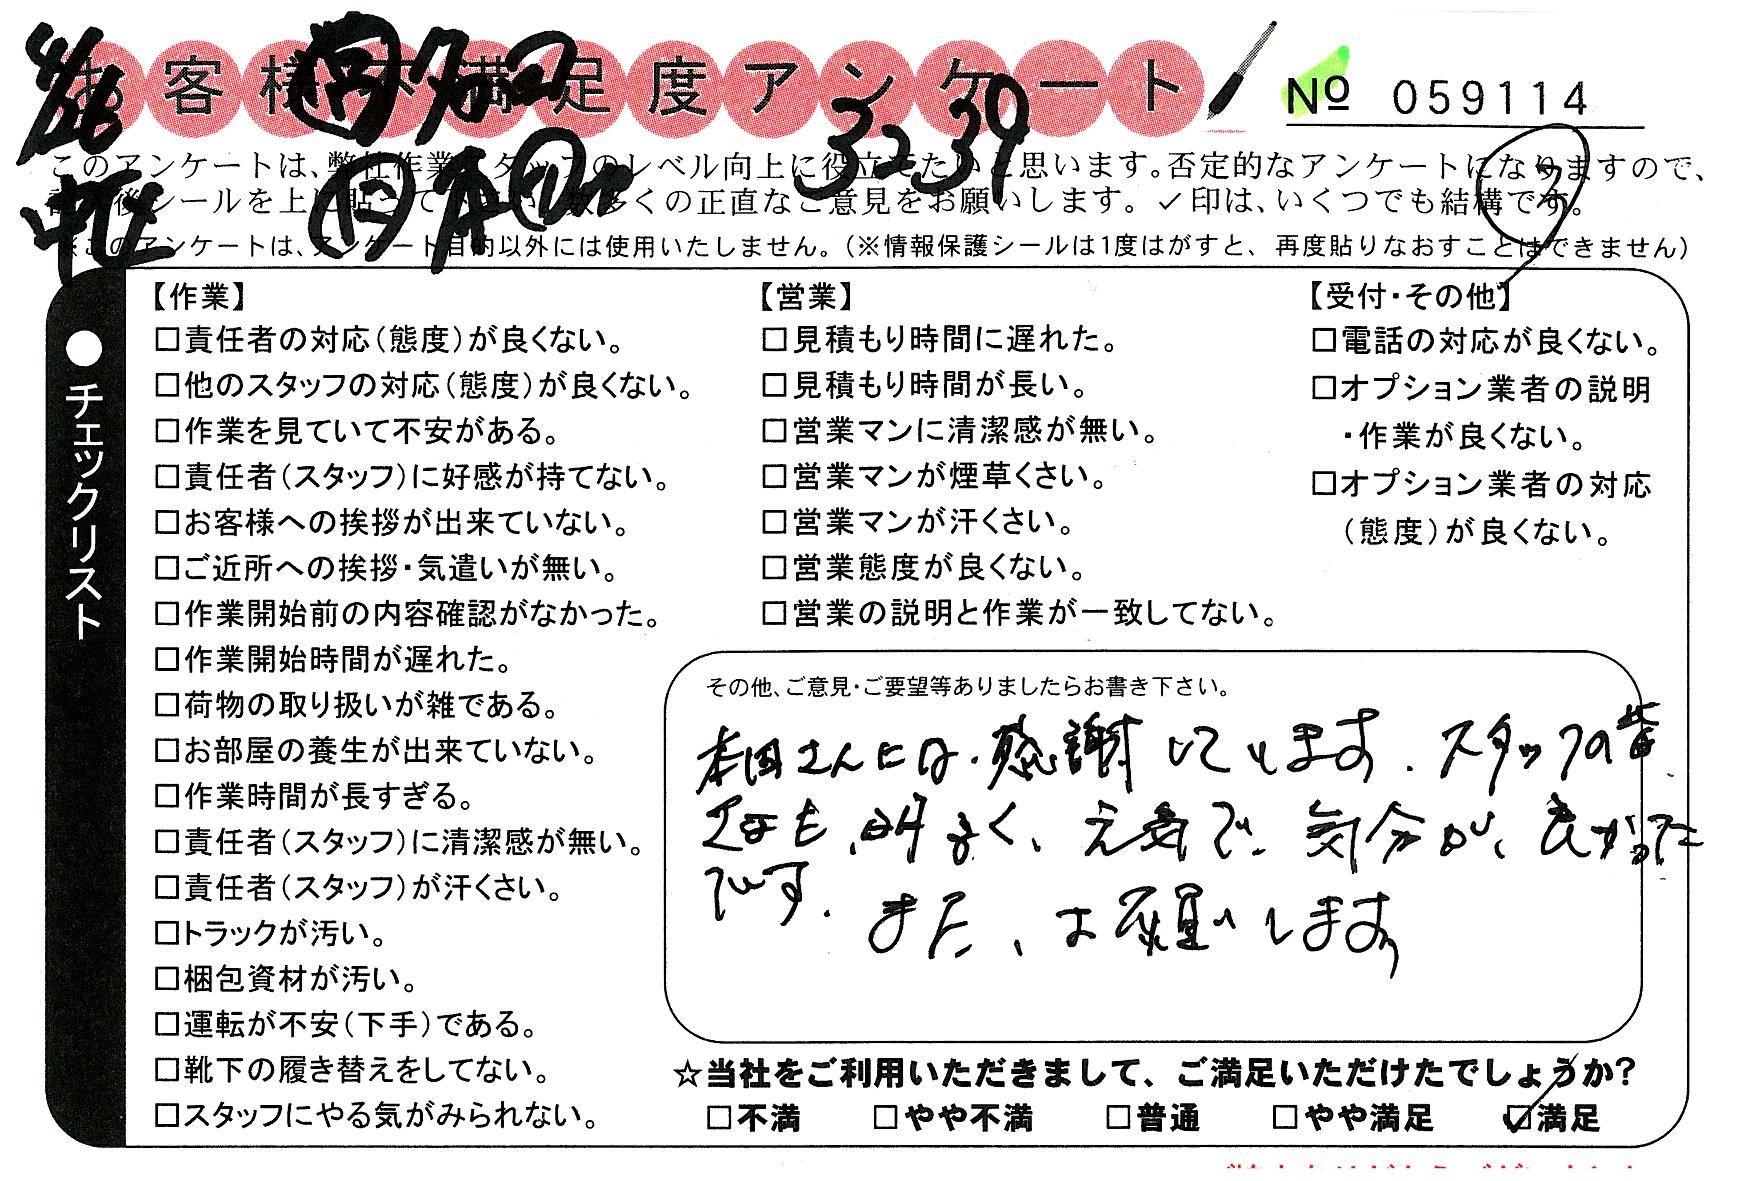 4/26
お客様不満足度アンケート
№ 059114
3239
このアンケートは、弊社作業スタッフのレベル向上に役立てたいと思います。否定的なアンケートになりますので、
後シールを上に貼って 多くの正直なご意見をお願いします。✓印は、いくつでも結構です。
※このアンケートは、アンケート目的以外には使用いたしません。(※情報保護シールは1度はがすと、再度貼りなおすことはできません)
●チェックリスト
【作業】
□責任者の対応(態度)が良くない。
□他のスタッフの対応(態度)が良くない。
□作業を見ていて不安がある。
□責任者(スタッフ)に好感が持てない。
□お客様への挨拶が出来ていない。
□ご近所への挨拶・気遣いが無い。
□作業開始前の内容確認がなかった。
□作業開始時間が遅れた。
□荷物の取り扱いが雑である。
□お部屋の養生が出来ていない。
□作業時間が長すぎる。
□責任者(スタッフ)に清潔感が無い。
□責任者(スタッフ)が汗くさい。
□トラックが汚い。
□梱包資材が汚い。
□運転が不安(下手)である。
□靴下の履き替えをしてない。
□スタッフにやる気がみられない。
【営業】
□見積もり時間に遅れた。
□見積もり時間が長い。
□営業マンに清潔感が無い。
□営業マンが煙草くさい。
□営業マンが汗くさい。
□営業態度が良くない。
□営業の説明と作業が一致してない。
【受付・その他】
□電話の対応が良くない。
□オプション業者の説明
・作業が良くない。
□オプション業者の対応
(態度)が良くない。
その他、ご意見・ご要望等ありましたらお書き下さい。
本田さんには、感謝しています。スタッフの皆
さまも、明るく、元気で、気分が、良かった
です。また、お願いします
☆当社をご利用いただきまして、ご満足いただけたでしょうか?
□不満 □やや不満 □普通 □やや満足 ☑満足